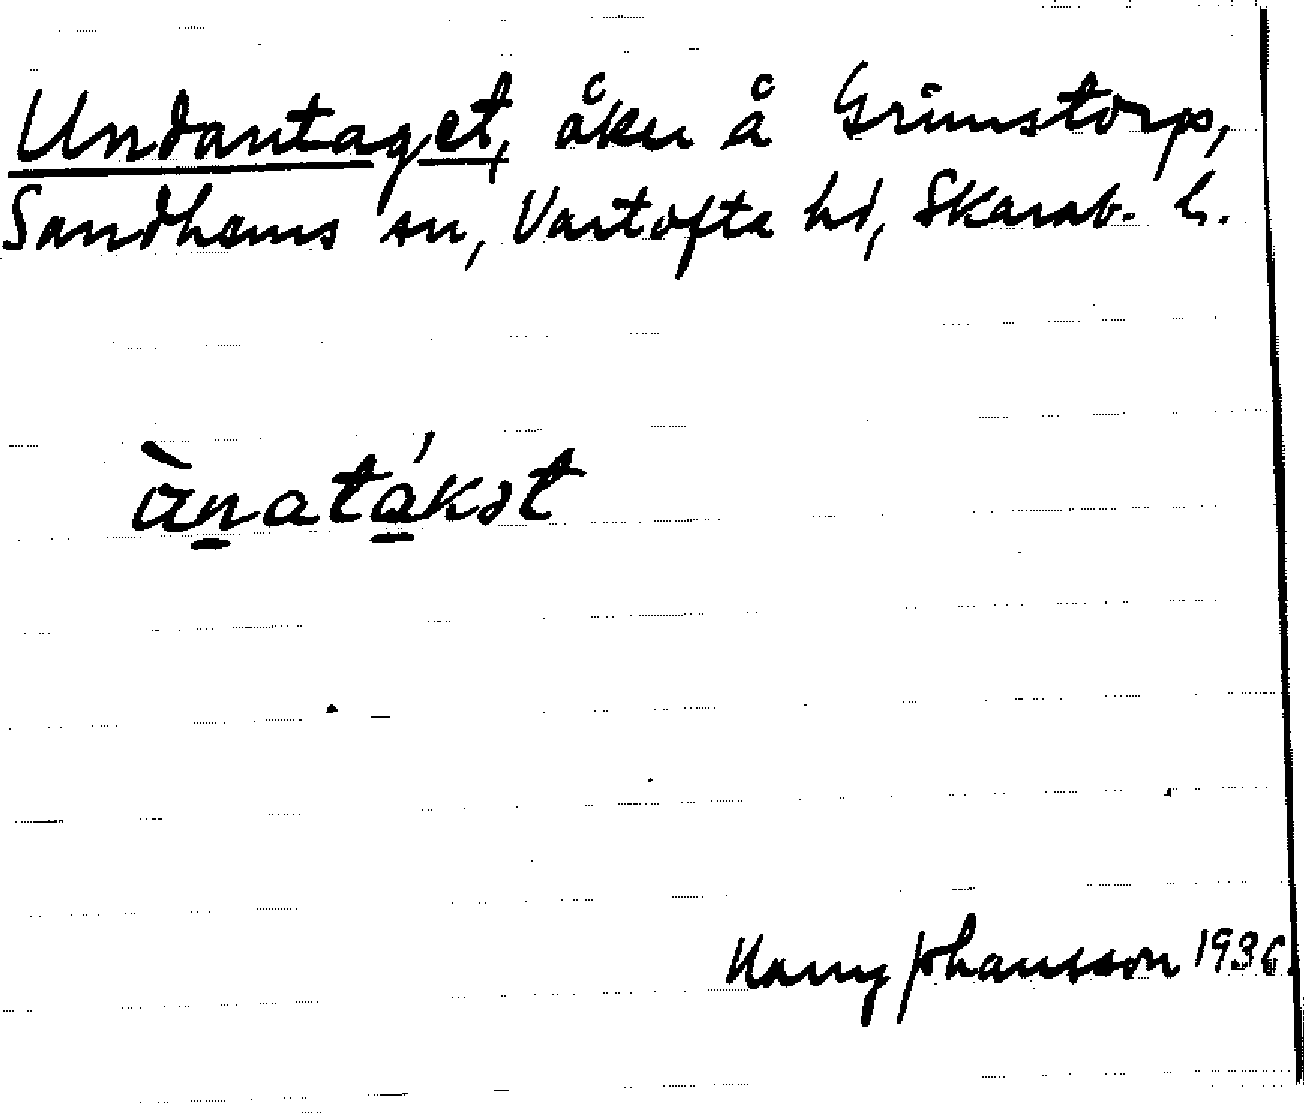 Undantaget, åker å Grimstorp,
Sandhems sn, Vartofta hd, Skarab. l.
ànatákst
Harry Johansson 1936